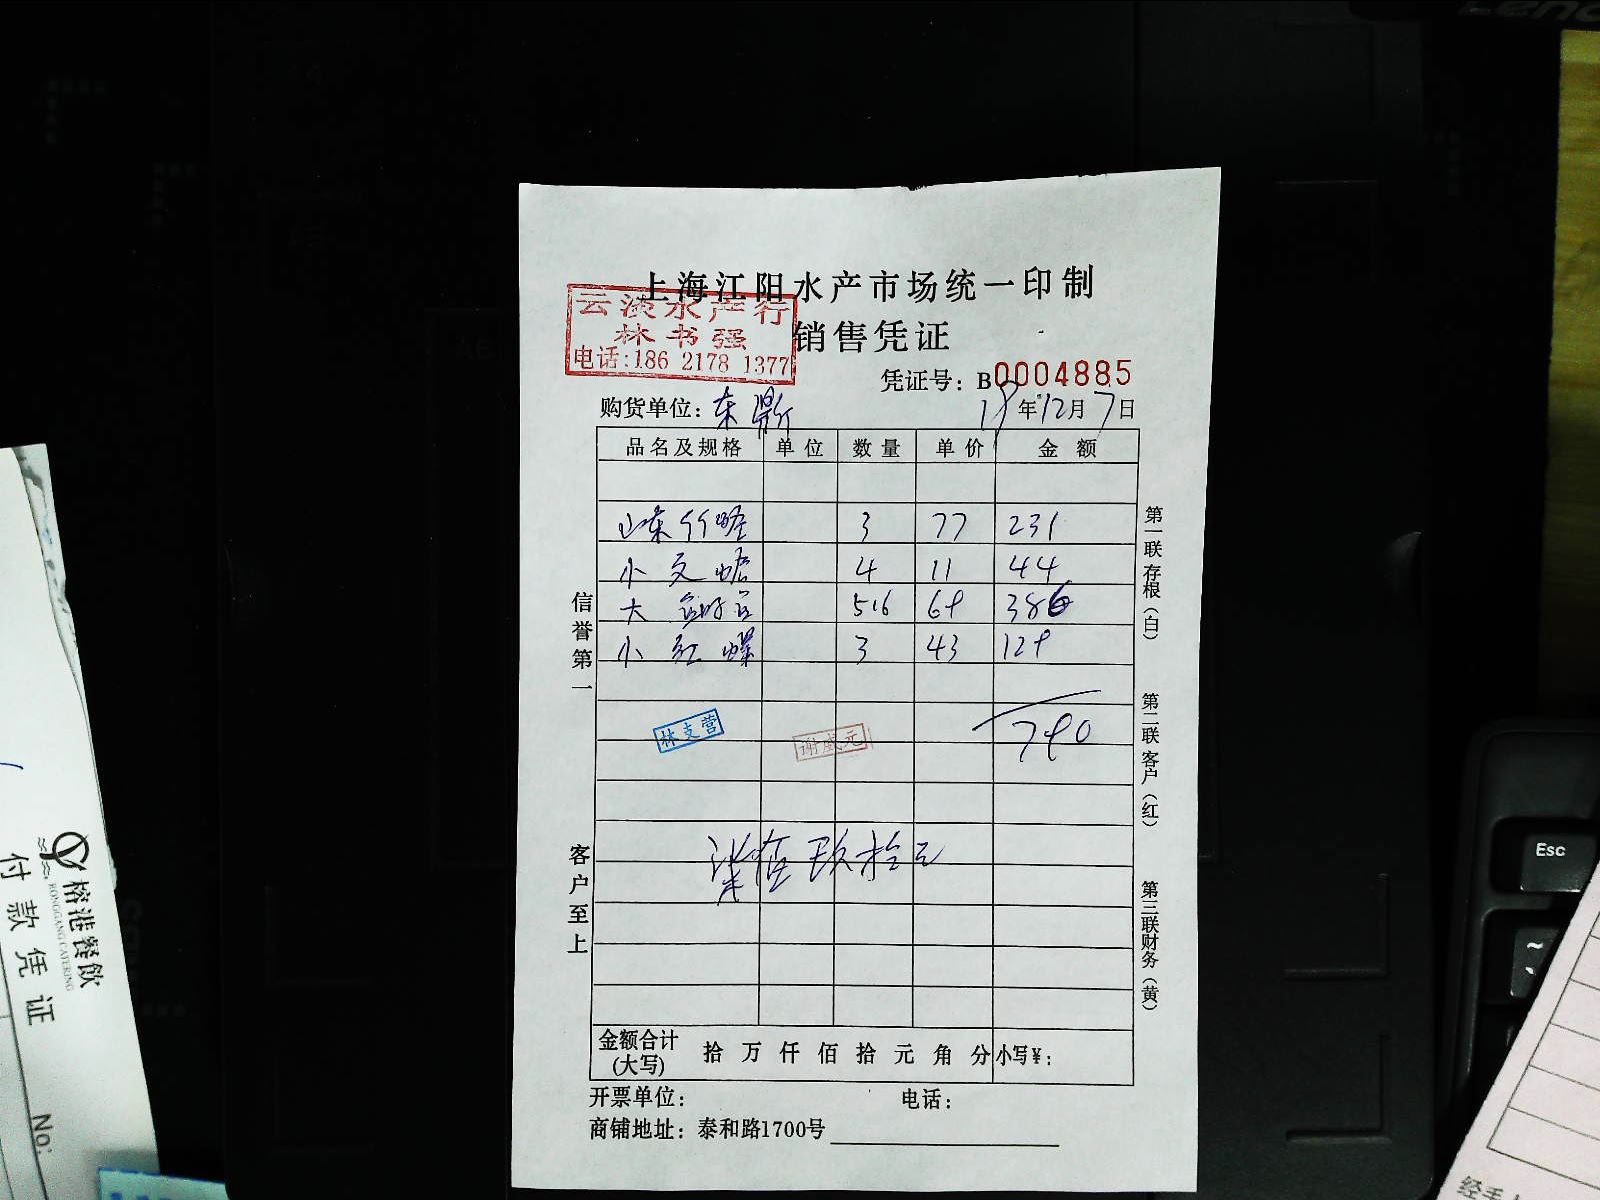 Lenovo
上海江阳水产市场统一印制
云淡水产行
林书强
电话:186 2178 1377
销售凭证
凭证号: B0004885
购货单位: 东
19年12月7日
品名及规格 单位 数量 单价 金额
山东竹蛏 3 77 231
小文蛤 4 11 44
大 5.6 69 386
小红螺 3 43 129
林支营
790
柒佰玖拾元
信誉第一
客户至上
第一联存根(白)
第二联客户(红)
第三联财务(黄)
金额合计
(大写)
拾万仟佰拾元角分 小写¥:
开票单位: 电话:
商铺地址: 泰和路1700号
榕港餐饮
RONGGANG CATERING
付款凭证
No:
Esc
~
经手